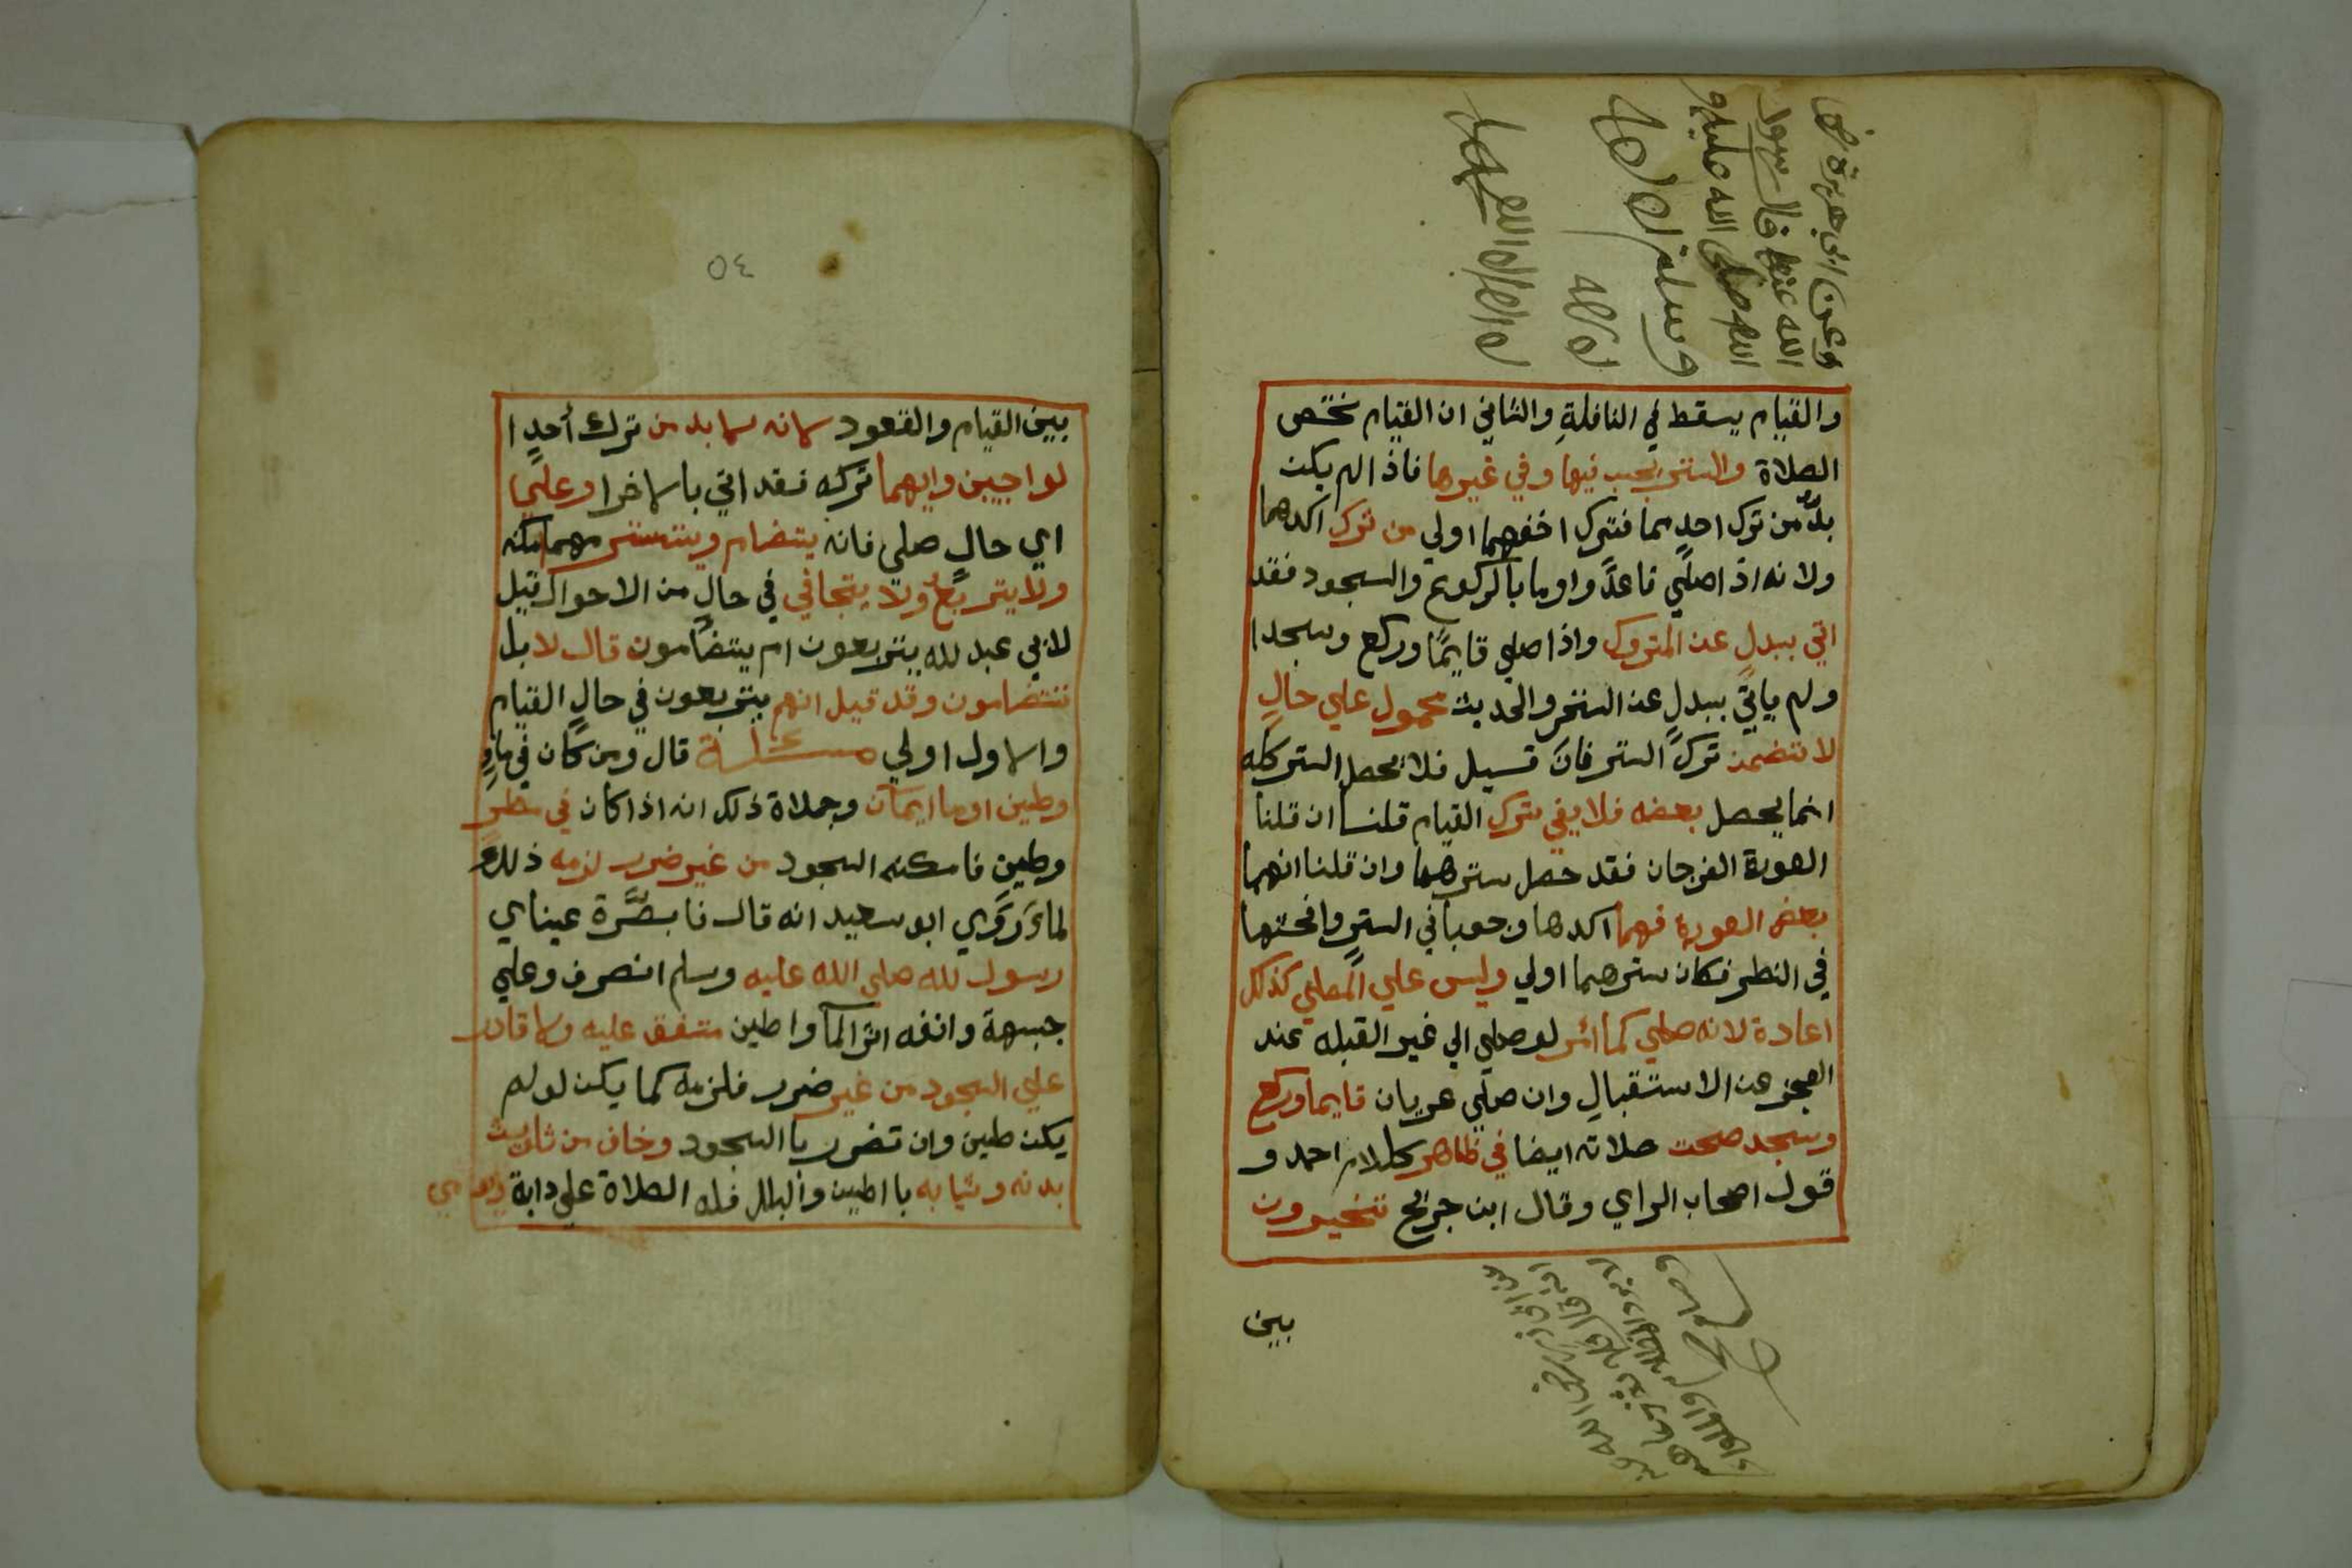 وعن ابي هريرة رضي
الله عنه قال رسول
الله صلى الله عليه
وسلم
والقيام يسقط في النافلةِ والثاني ان القيام يختص
الصلاة والستر يجب فيها وفي غيرها فاذا لم يكن
بدٌّ من ترك احدٍ هما فترك اخفهما اولي من ترك اكدهما
ولا نه اذ اصلّي قاعدًا واوما بالركوع والسجود فقد
اتي ببدلٍ عن المتروك واذا صلي قايمًا وركع وسجدا
ولم ياتي ببدلٍ عن الستر والحديث محمول علي حالٍ
لا تتضمن تركَ الستر فان قسيل فلا يحصل الستر كله
انما يحصل بعضه فلا يفي بترك القيام قلنا ان قلنا
العورة الفرجان فقد حصل سترهما وان قلنا انهما
بعض العورة فهما اكدها وجوبا في الستر وافحشها
في النظر فكان سترهما اولي وليس علي المصلي كذلك
اعادة لانه صلي كما امر لو صلي الي غير القبله عند
العجز عن الاستقبالِ وان صلّي عريان قايما وركع
وسجد صحت صلاته ايضا في ظاهر كلام احمد و
قول اصحاب الراي وقال ابن جريج تتخيرون
بين
٥٤
بين القيام والقعود لانه لا بد من ترك أحدِ ا
لواجبين وايهما تركه فقد اتي بالاخرا وعلي
اي حالٍ صلي فانه يتضام ويتستر مهما امكنه
ولا يتربّعُ ولا يتجافي في حالٍ من الاحوال قيل
لابي عبد لله يتربعون ام يتضامون قال لا بل
تتضامون وقد قيل انهم يتربعون في حالٍ القيام
والاول اولي مسئلة قال ومن كان في ماءٍ
وطين اوما ايمآن وجملاة ذلك انه اذا كان في مطرٍ
وطين فامكنه السجود من غير ضرر لزمه ذلك
لما رَوَي ابو سعيد انه قال فابصرَّة عيناي
رسول لله صلي الله عليه وسلم انصرف وعلي
جبهة وانفه اثر المآ واطين متفق عليه ولا قادر
علي السجود من غير ضرر فلزمه كما يكن لو لم
يكن طين وان تضرر با السجود وخاف من ثلويث
بدنه وثيابه با اطين والبلل فله الصلاة علي دابة